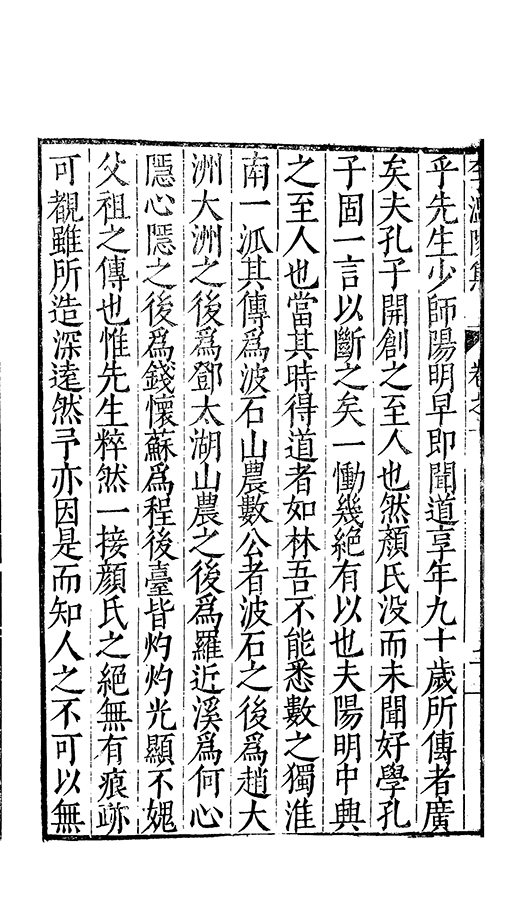 李溫陵集 卷之
乎先生少師陽明早即聞道享年九十歲所傳者廣
矣夫孔子開創之至人也然顏氏没而未聞好學孔
子固一言以斷之矣一慟幾絕有以也夫陽明中興
之至人也當其時得道者如林吾不能悉數之獨淮
南一派其傳爲波石山農數公者波石之後爲趙大
洲大洲之後爲鄧太湖山農之後爲羅近溪爲何心
隱心隱之後爲錢懷蘇爲程後臺皆灼灼光顯不媿
父祖之傳也惟先生粹然一接顏氏之絕無有痕跡
可覩雖所造深遠然予亦因是而知人之不可以無